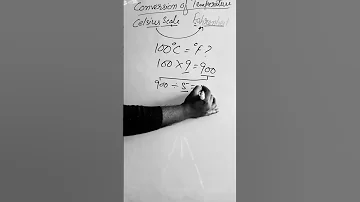 Conversion of Temperature
Celsius Scale Fahrenheit
100°C = °F?
100 × 9 = 900
900 ÷ 5 =